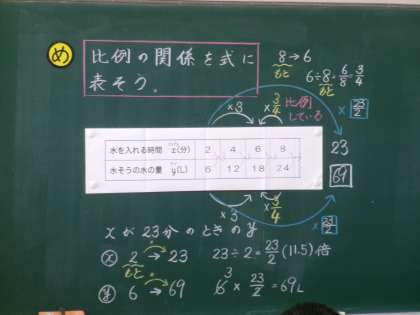 め
比例の関係を式に
表そう。
8→6
もと
6÷8=6/8 3/4
もと
×3 ×3/4 比例
している
×23/2
水を入れる時間 x(分) 2 4 6 8 23
水そうの水の量 y(L) 6 12 18 24 69
×3 ×3/4
×23/2
xが23分のときのy
x 2→23 23÷2=23/2(11.5)倍
もと
y 6→69 6 3×23/2=69L